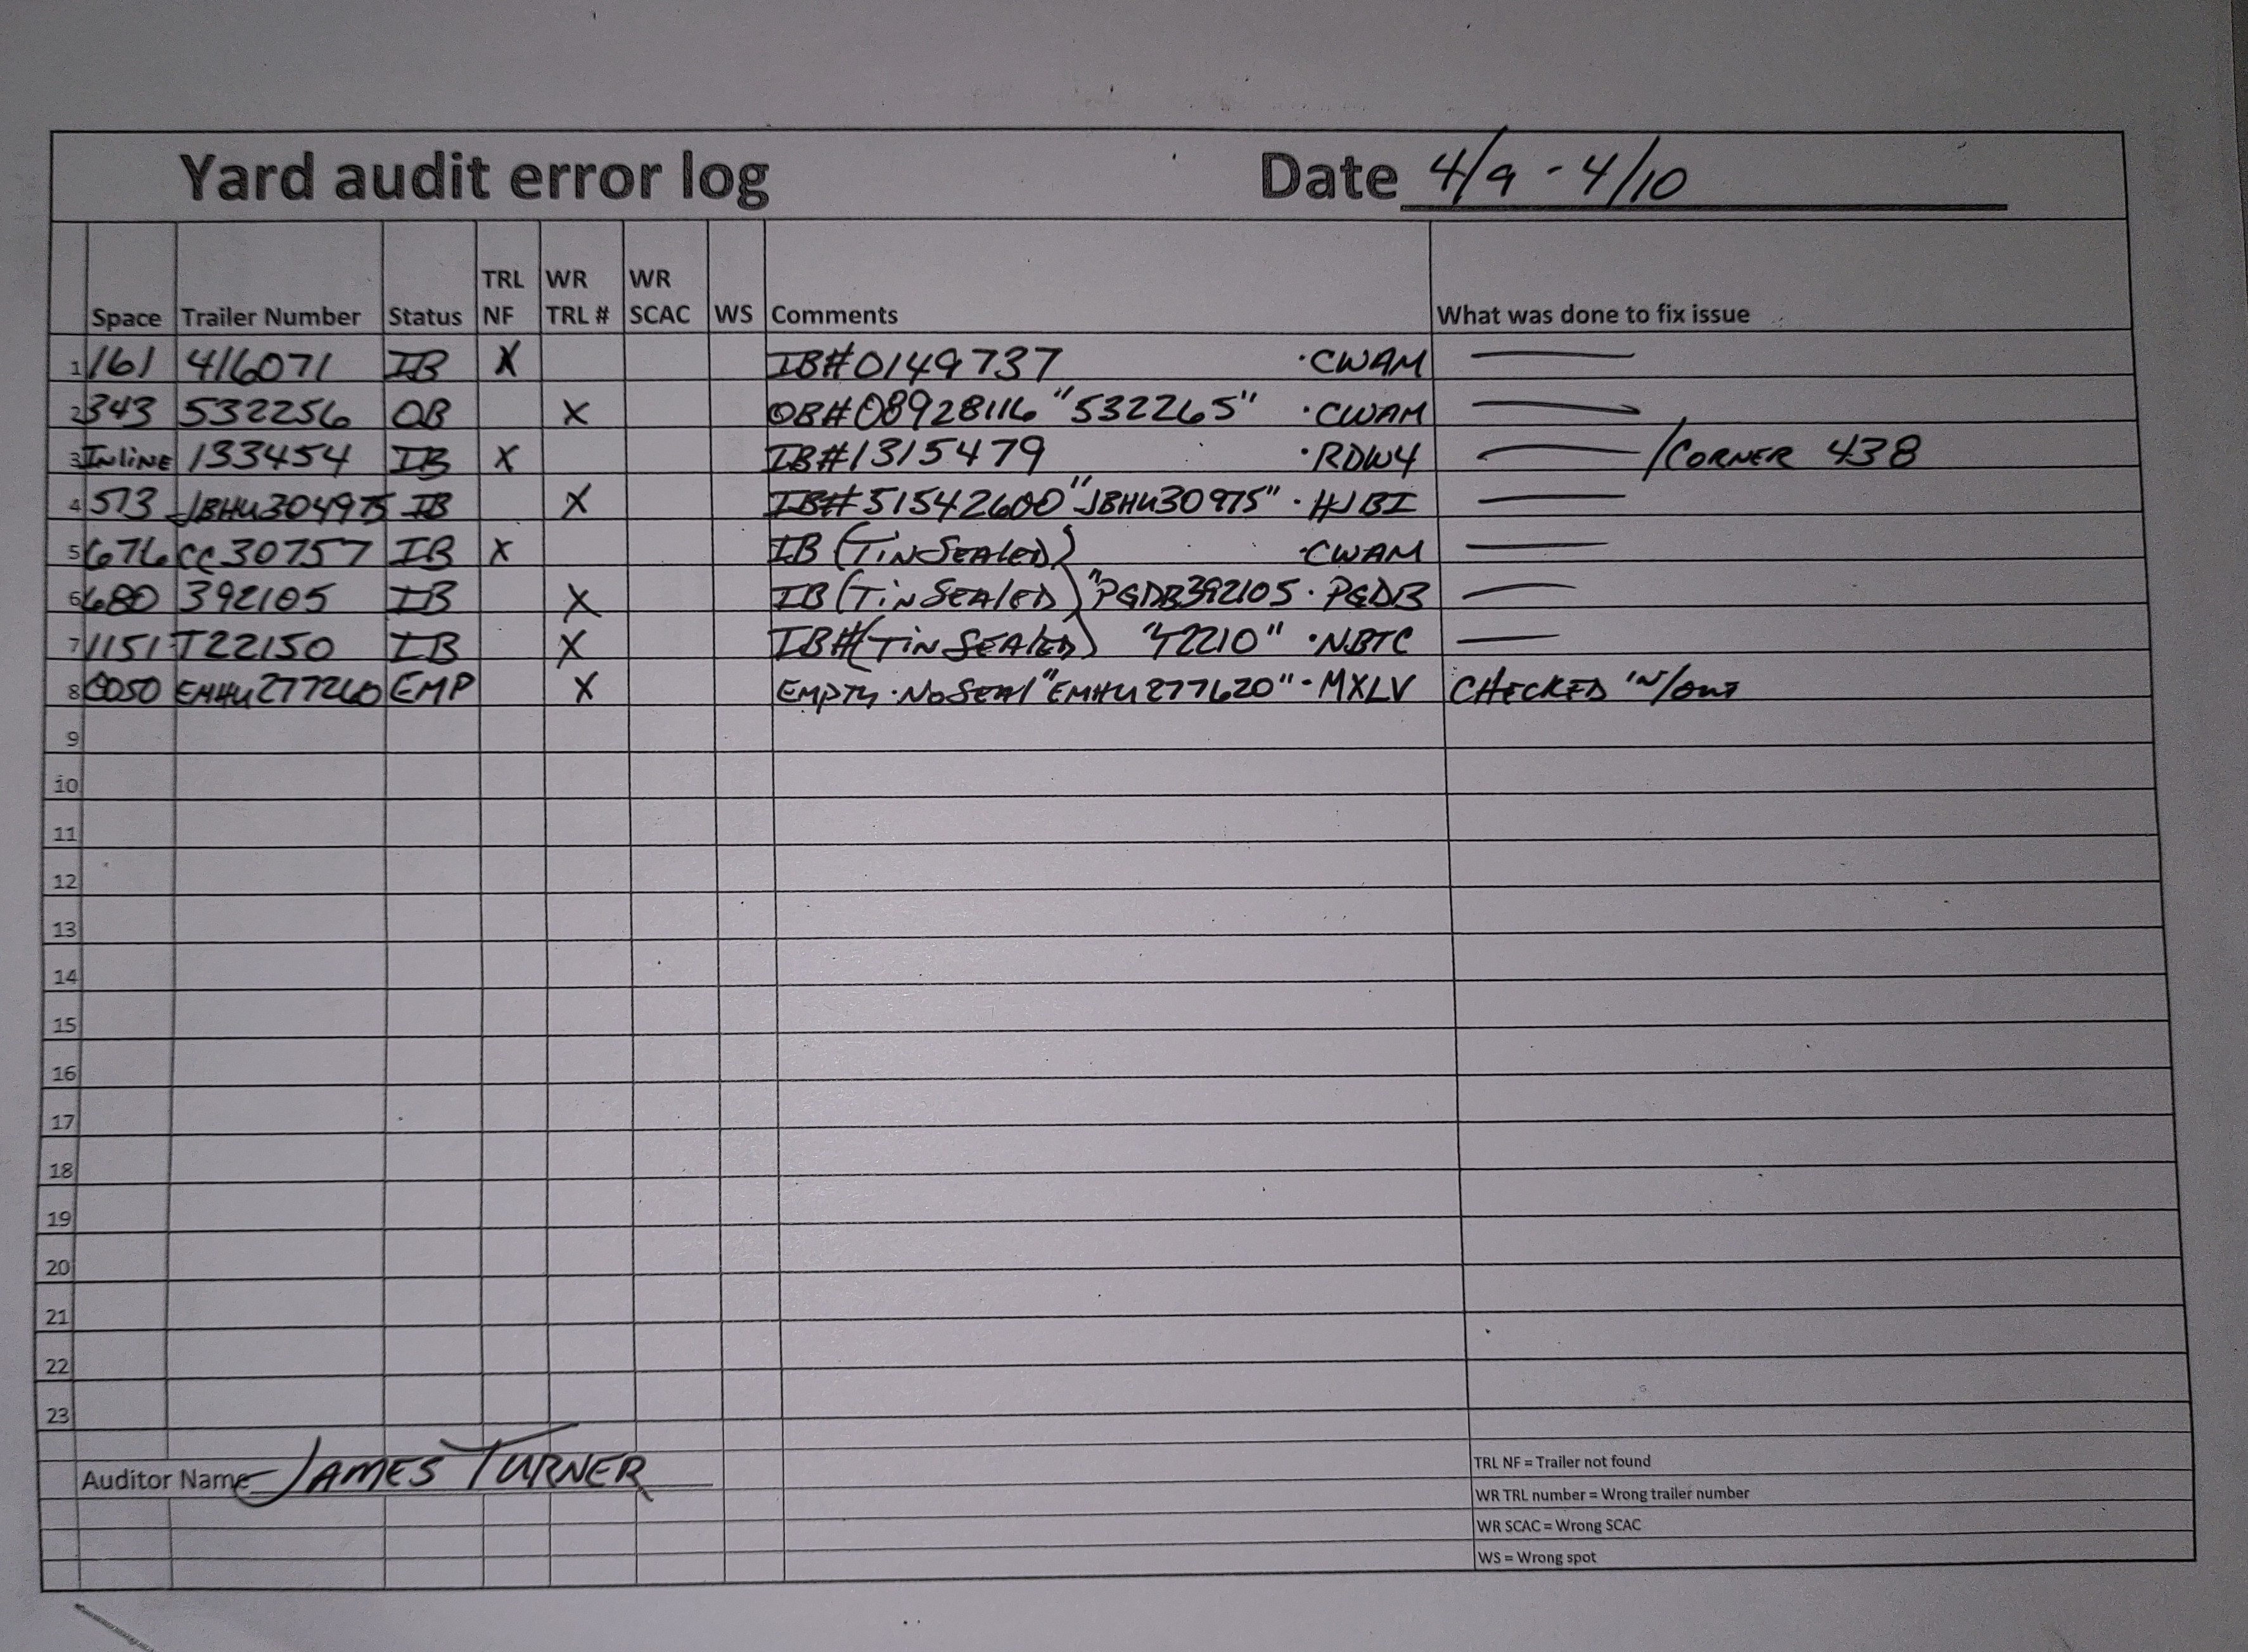 Yard audit error log Date 4/9 - 4/10
Space Trailer Number Status TRL NF WR TRL # WR SCAC WS Comments What was done to fix issue
1 161 416071 IB X IB#0149737 ·CWAM —
2 343 532256 OB X OB#08928116 "532265" ·CWAM —
3 Inline 133454 IB X IB#1315479 ·RDW4 — /CORNER 438
4 513 JBHU304975 IB X IB#51542600 "JBHU30975" ·HJBI —
5 676 CC30757 IB X IB (TinSEAlED) ·CWAM —
6 680 392105 IB X IB (TinSEAlED) "PGDB392105 · PGDB —
7 1151 T22150 IB X IB#(TinSEAlED) ·NBTC —
8 0050 EMHU277260 EMP X EMPTY·NoSEAl "EMHU277620" · MXLV CHECKED IN/OUT
9
10
11
12
13
14
15
16
17
18
19
20
21
22
23
Auditor Name JAMES TURNER
TRL NF = Trailer not found
WR TRL number = Wrong trailer number
WR SCAC = Wrong SCAC
WS = Wrong spot